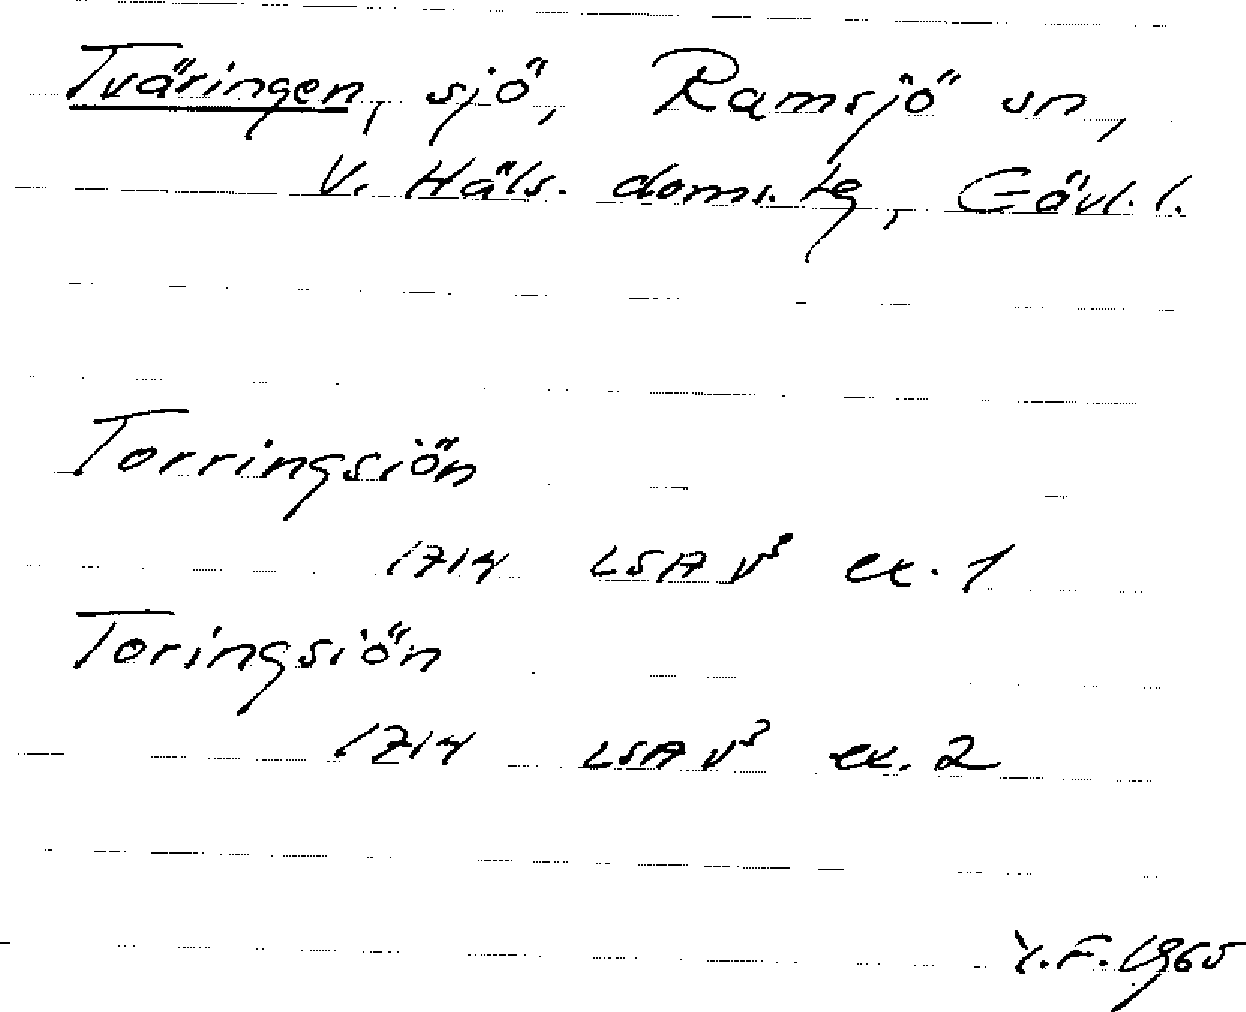 Tväringen, sjö, Ramsjö sn,
V. Häls. doms. tg, Gävl. l.
Torringsiön
1714 LSA V³ ex. 1
Toringsiön
1714 LSA V³ ex. 2
Y.F. 1965